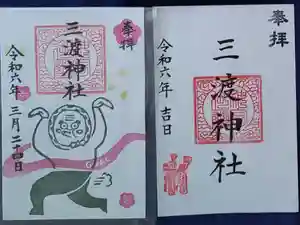 奉拝
三渡神社
令和六年 三月二十四日
奉拝
三渡神社
令和六年 吉日